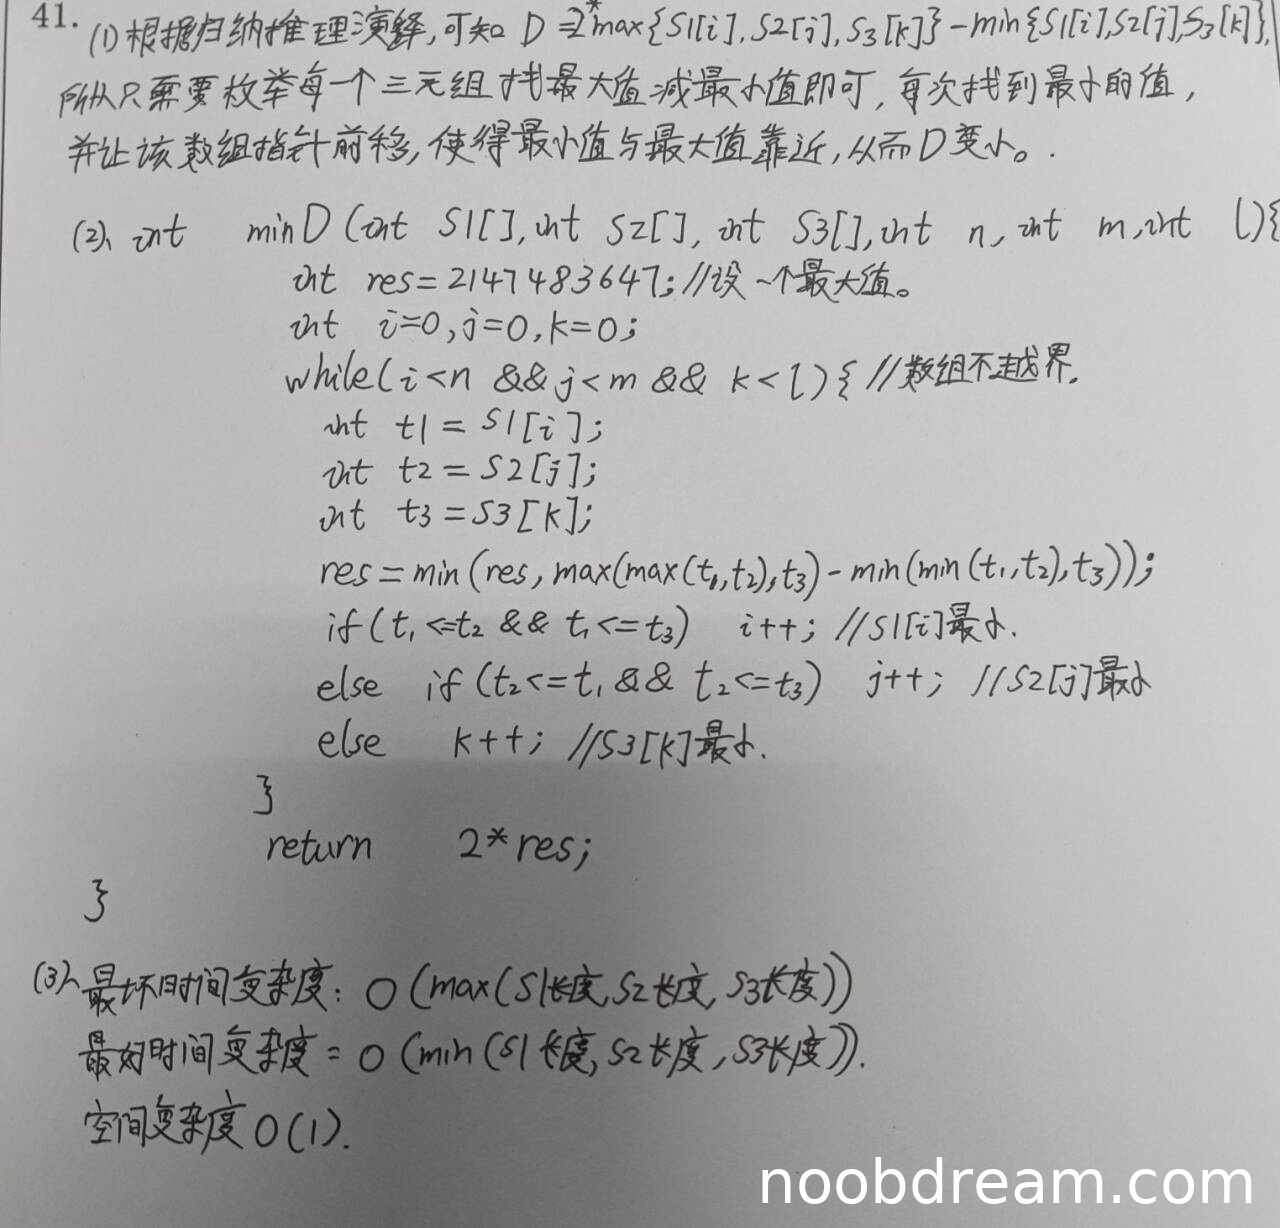 41.
(1)根据归纳推理演绎,可知 D=2*max{S1[i],S2[j],S3[k]}-min{S1[i],S2[j],S3[k]},
所以只需要枚举每一个三元组找最大值减最小值即可,每次找到最小的值,
并让该数组指针前移,使得最小值与最大值靠近,从而D变小。.
(2)、int minD(int S1[],int S2[],int S3[],int n,int m,int l){
int res=2147483647;//设一个最大值。
int i=0,j=0,k=0;
while(i<n && j<m && k<l){ //数组不越界.
int t1=S1[i];
int t2=S2[j];
int t3=S3[k];
res=min(res,max(max(t1,t2),t3)-min(min(t1,t2),t3));
if(t1<=t2 && t1<=t3) i++; //S1[i]最小.
else if(t2<=t1 && t2<=t3) j++; //S2[j]最小
else k++; //S3[k]最小.
}
return 2*res;
}
(3)、最坏时间复杂度: O(max(S1长度,S2长度,S3长度))
最好时间复杂度=O(min(S1长度,S2长度,S3长度)).
空间复杂度O(1).
noobdream.com